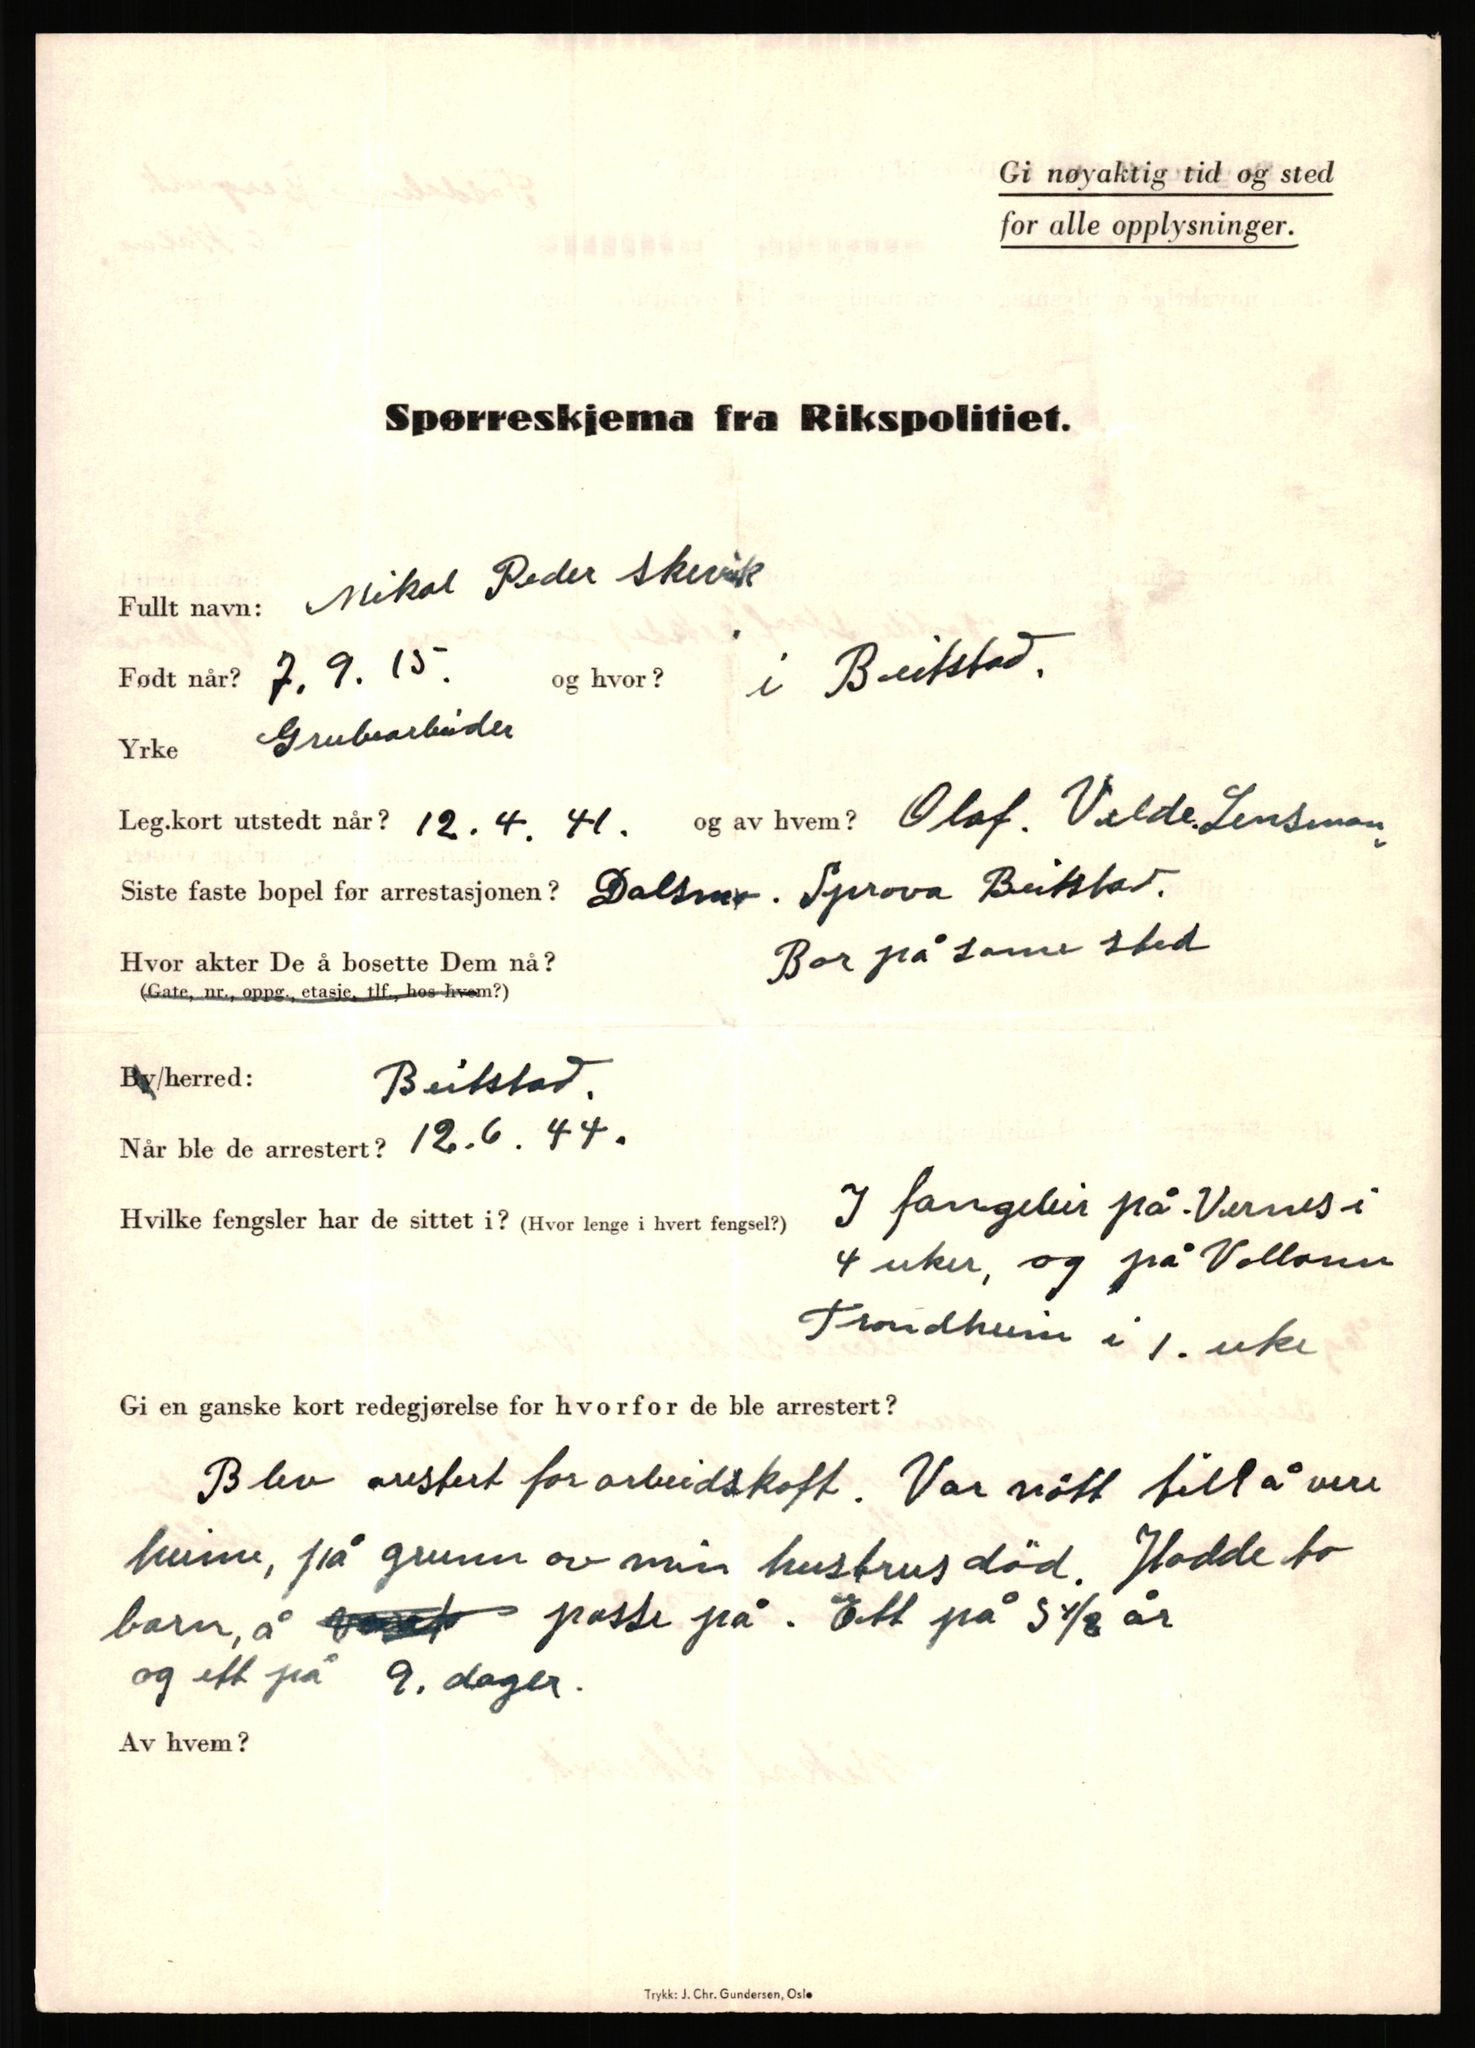 Gi nøyaktig tid og sted
for alle opplysninger.
Spørreskjema fra Rikspolitiet.
Fullt navn: Mikal Peder Skevik
Født når? 7. 9. 15. og hvor? i Beitstad.
Yrke Grubearbeider
Leg.kort utstedt når? 12. 4. 41. og av hvem? Olaf. Velde. Lensman
Siste faste bopel før arrestasjonen? Dalsmo. Sprova Beitstad.
Hvor akter De å bosette Dem nå? Bor på same sted
(Gate, nr., oppg., etasje, tlf., hos hvem?)
By/herred: Beitstad.
Når ble de arrestert? 12. 6. 44.
Hvilke fengsler har de sittet i? (Hvor lenge i hvert fengsel?) I fangeleir på Vernes i
4 uker, og på Vollann
Trondheim i 1. uke
Gi en ganske kort redegjørelse for hvorfor de ble arrestert?
Blev arestert for arbeidskaft. Var nött till å vere
heime, på grunn av min hustrus död. Hadde to
barn, å passe på. Ett på 3 1/2 år
og ett på 9. dager.
Av hvem?
Trykk: J. Chr. Gundersen, Oslo